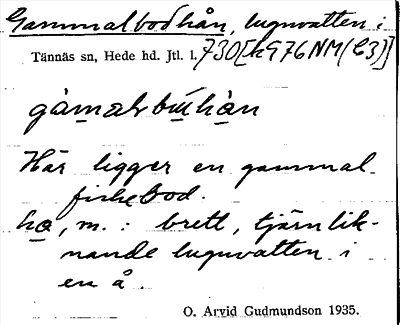 Gammalbodhån, lugnvatten i
Tännäs sn, Hede hd. Jtl. l. 730[k976NM(C3)]
gàmalbu̇hàn
Här ligger en gammal
fiskebod.
hɑ, m.: brett, tjärnlik-
nande lugnvatten i
en å.
O. Arvid Gudmundson 1935.